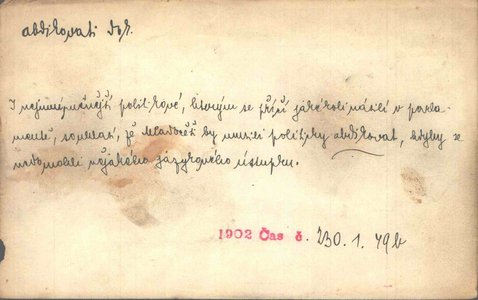 abdikovati dok.
I nejumírněnější politikové, kterým se příčí jakékoli násilí v parla-
mentě, soudí, že Mladočeši by musili politicky abdikovat, kdyby se
nedomohli nějakého jazykového ústupku.
1902 Čas č. 230. 1. 79b